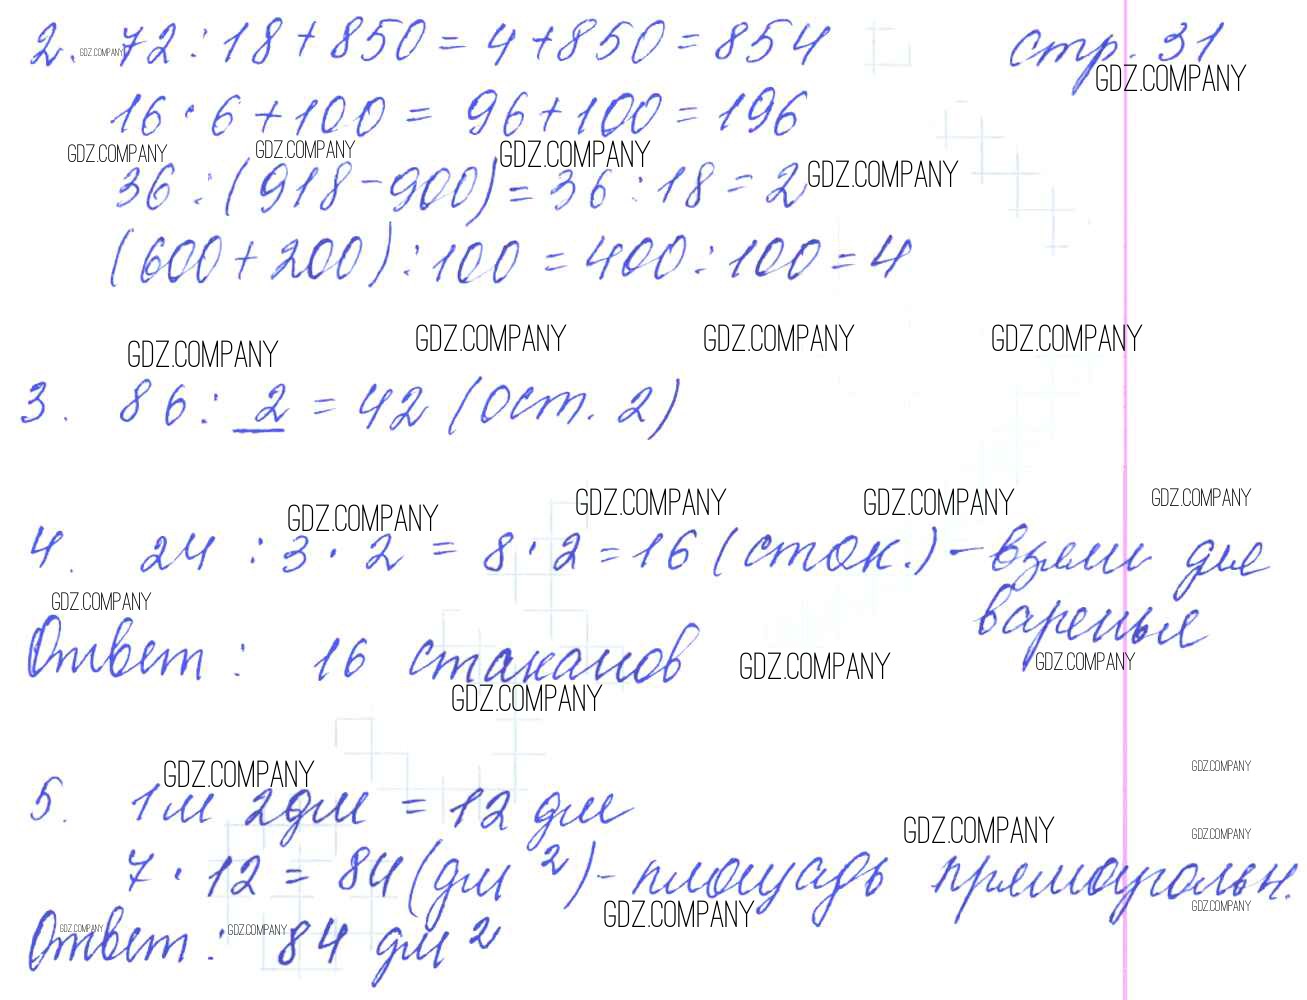 2. 72 : 18 + 850 = 4 + 850 = 854 стр. 31
GDZ.COMPANY GDZ.COMPANY
16 · 6 + 100 = 96 + 100 = 196
GDZ.COMPANY GDZ.COMPANY GDZ.COMPANY GDZ.COMPANY
36 : (918 - 900) = 36 : 18 = 2
(600 + 200) : 100 = 400 : 100 = 4
GDZ.COMPANY GDZ.COMPANY GDZ.COMPANY GDZ.COMPANY
3. 86 : 2 = 42 (ост. 2)
GDZ.COMPANY GDZ.COMPANY GDZ.COMPANY GDZ.COMPANY
4. 24 : 3 · 2 = 8 · 2 = 16 (стак.) - взяли для
GDZ.COMPANY варенья
Ответ : 16 стаканов
GDZ.COMPANY GDZ.COMPANY GDZ.COMPANY
GDZ.COMPANY GDZ.COMPANY
5. 1м 2дм = 12 дм
GDZ.COMPANY GDZ.COMPANY
7 · 12 = 84 (дм²) - площадь прямоугольн.
GDZ.COMPANY GDZ.COMPANY
GDZ.COMPANY GDZ.COMPANY
Ответ : 84 дм²